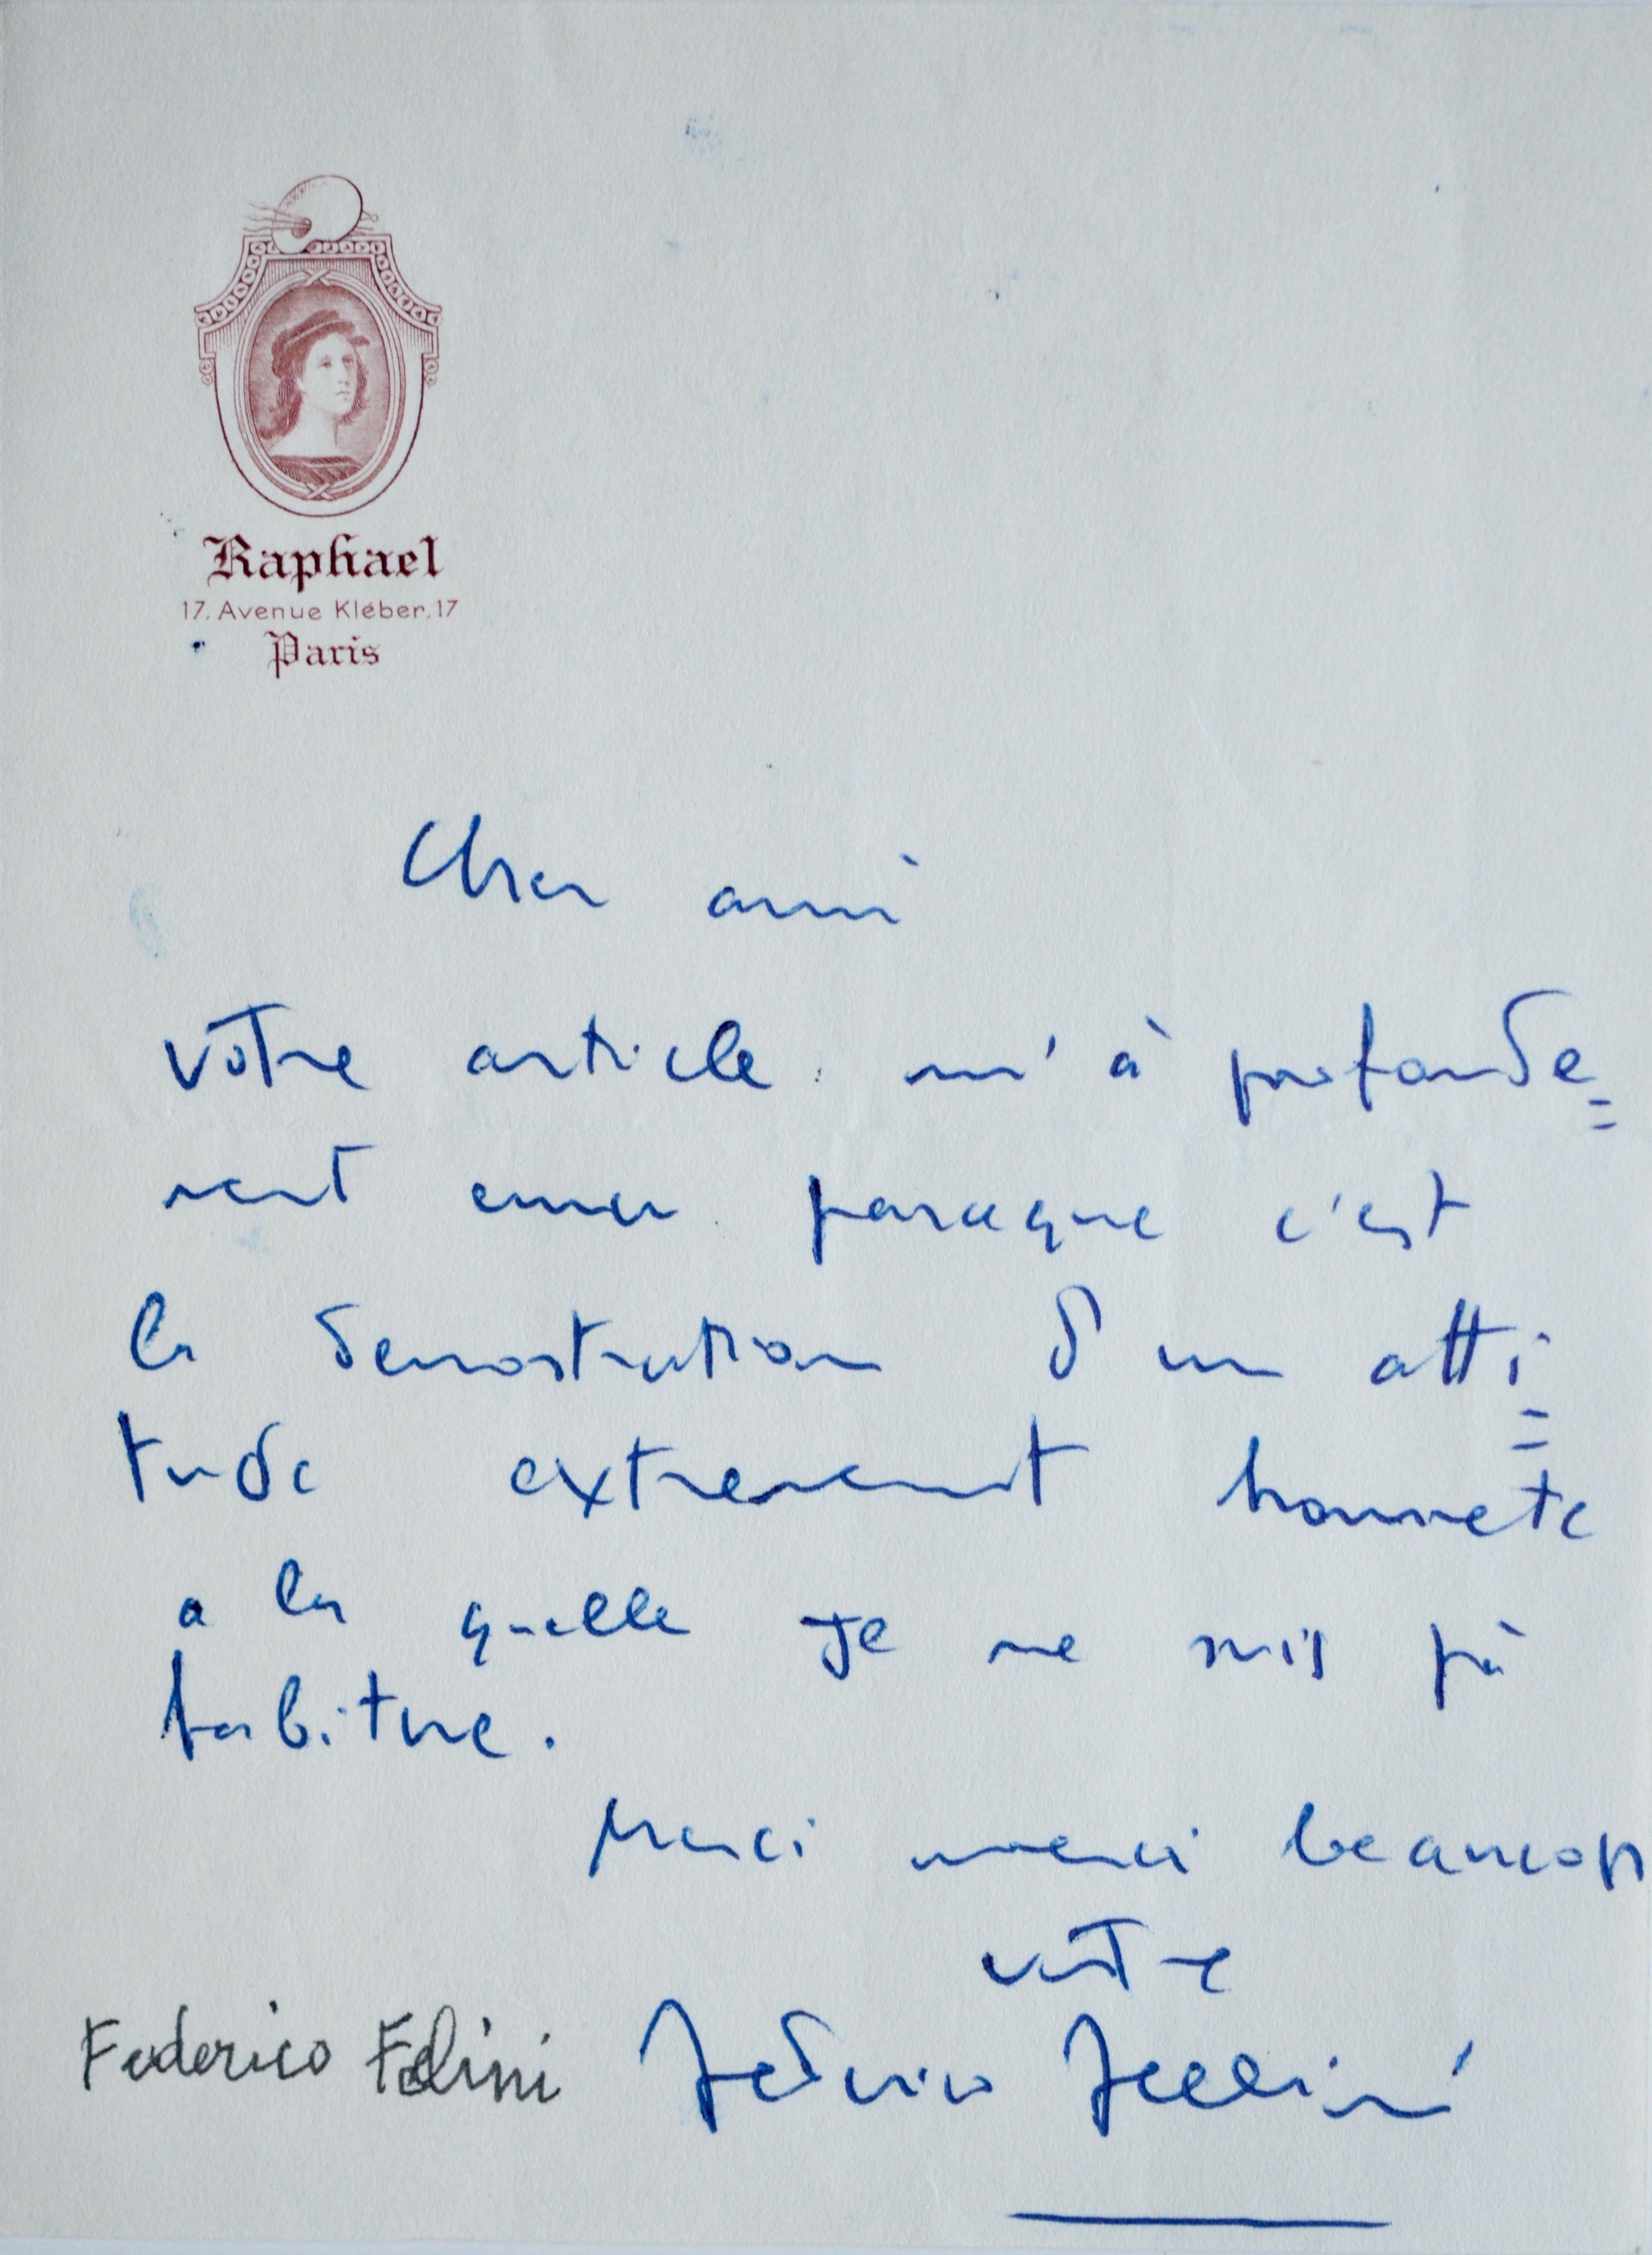 Raphael
17. Avenue Kléber. 17
Paris
Cher ami
votre article m'à profonde=
ment emu parceque c'est
la demostration d'un atti=
tude extremement honnete
a la quelle Je ne suis pà
habitue.
Merci merci beaucop
votre
Federico Fellini Federico Fellini